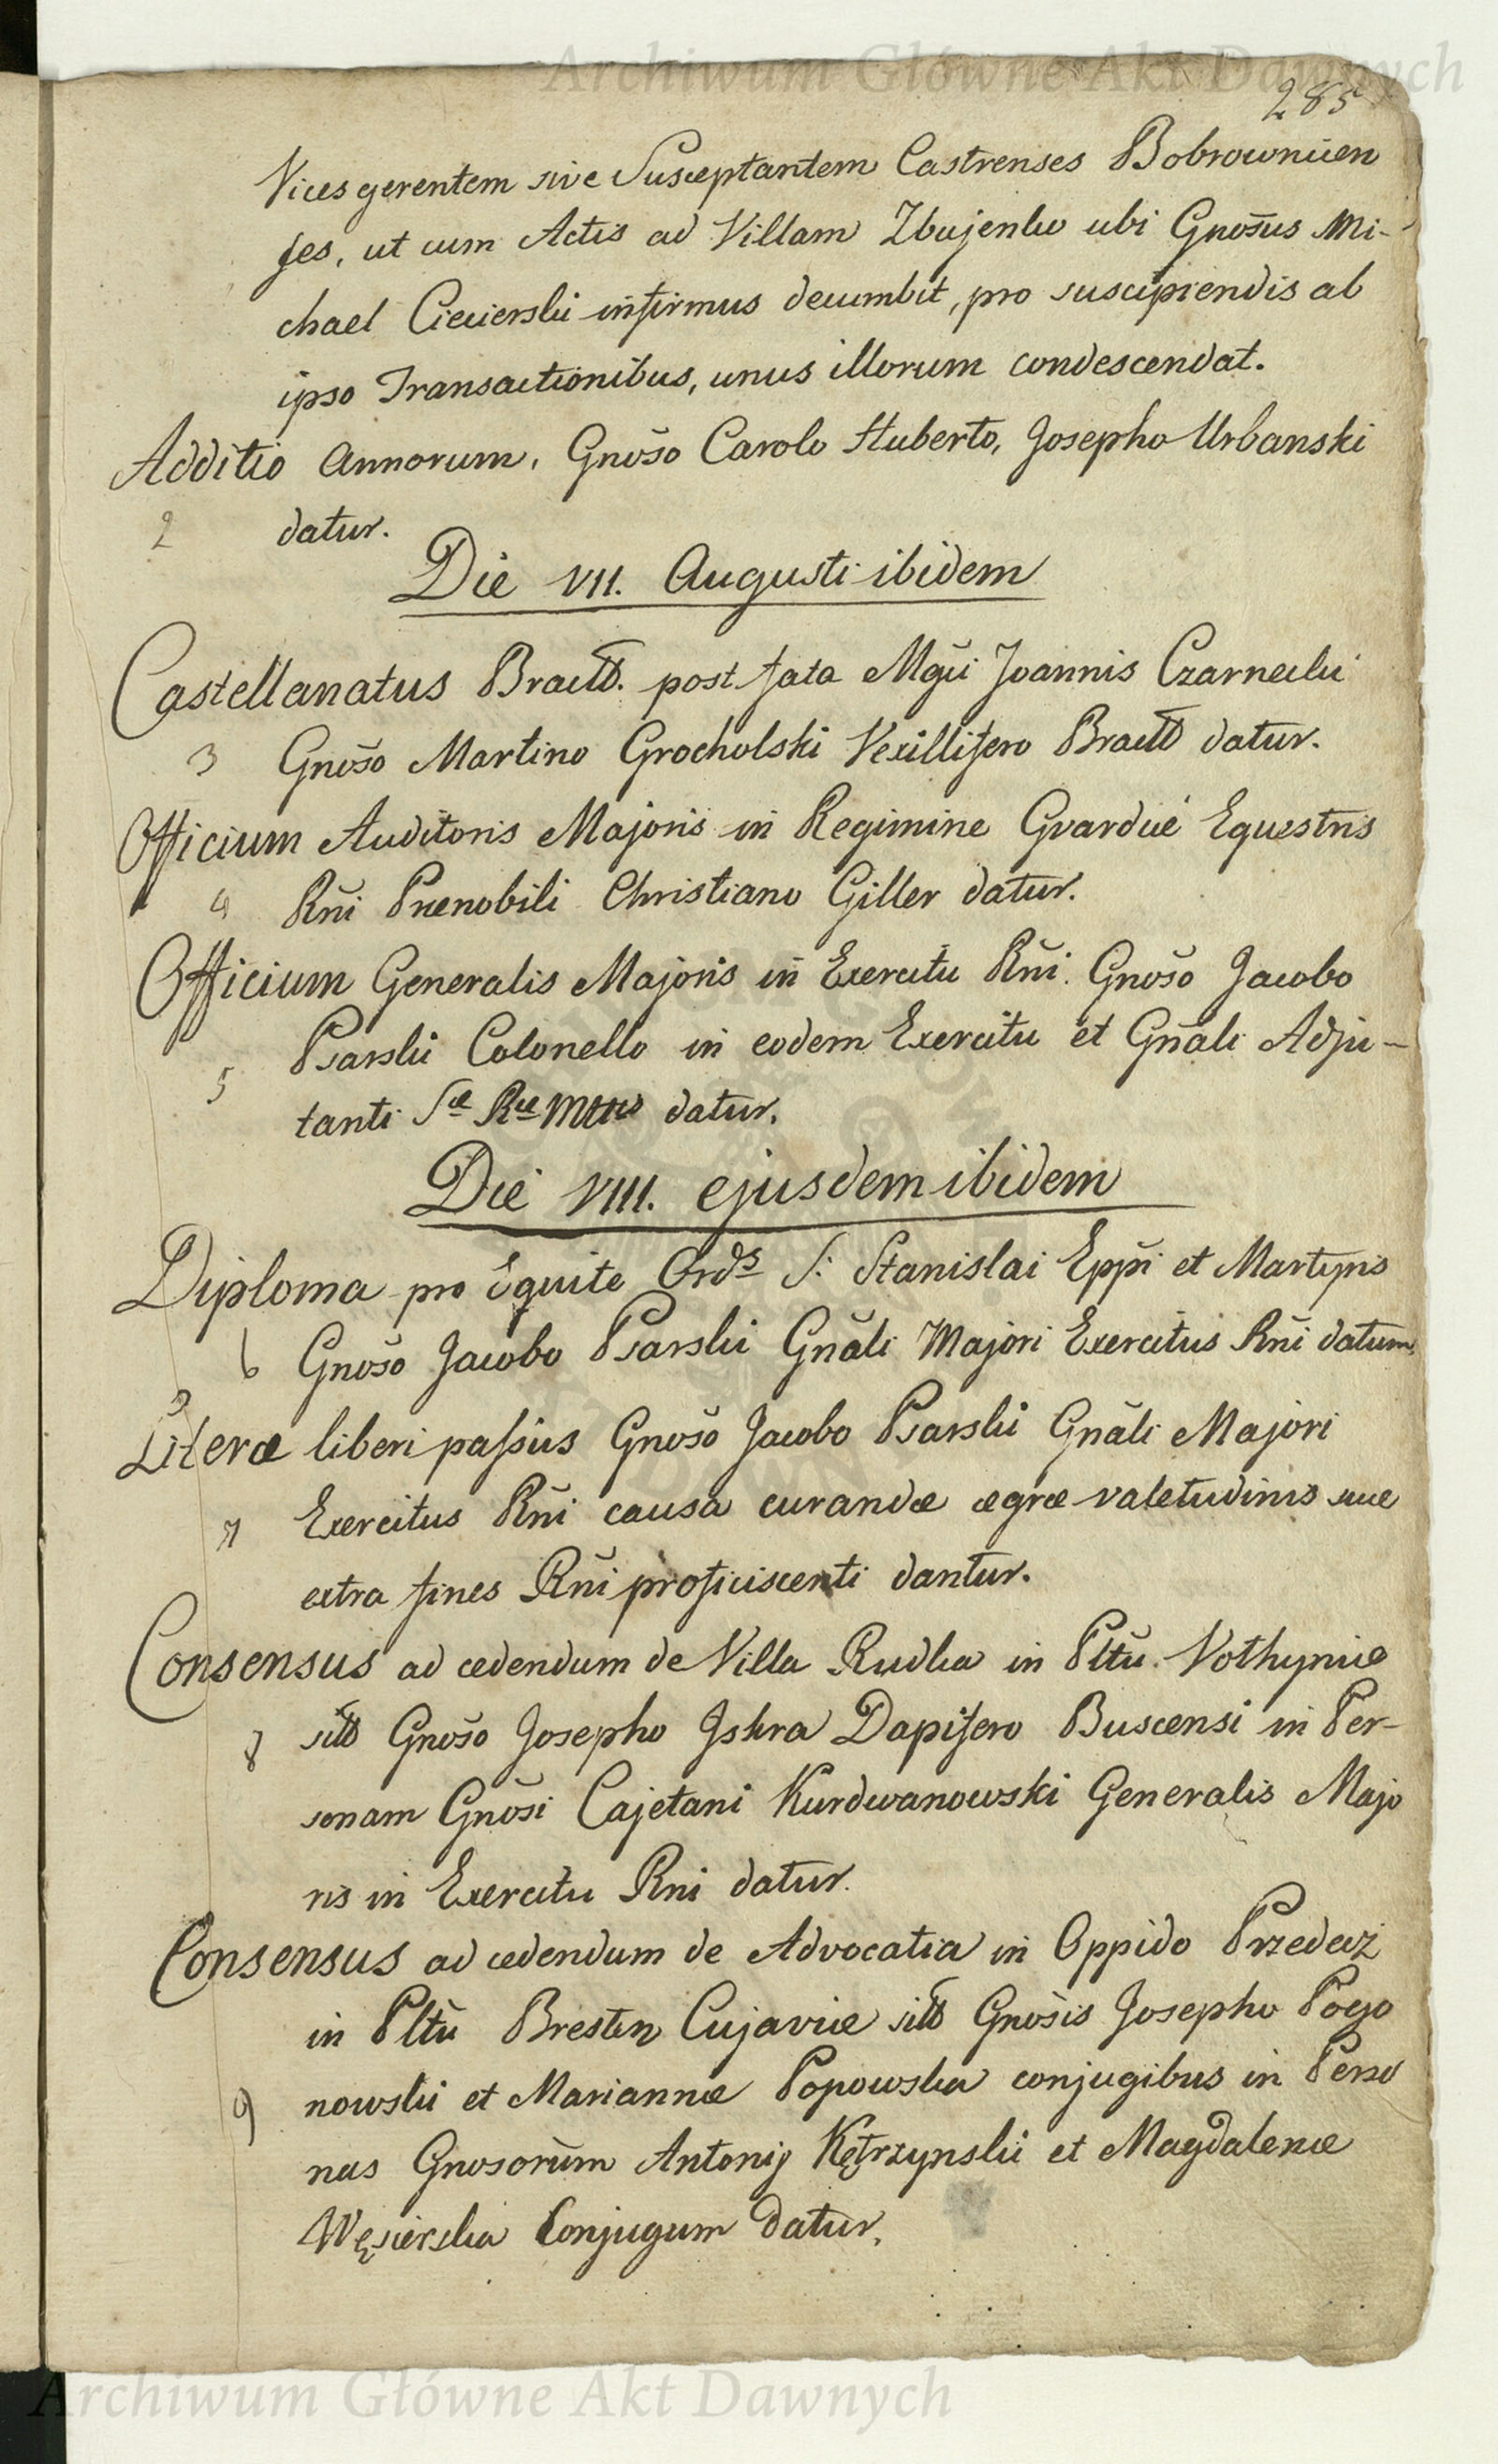 Archiwum Główne Akt Dawnych
285
Vices gerentem sive Susceptantem Castrenses Bobrownicen
ses, ut cum Actis ad Villam Zbujenko ubi Gnosus Mi-
chael Ciecierski infirmus decumbit, pro suscipiendis ab
ipso Transactionibus, unus illorum condescendat.
Additio Annorum, Gnoso Carolo Huberto, Josepho Urbanski
2 datur.
Die VII. Augusti ibidem
Castellanatus Bractt. post fata Mgci Joannis Czarnecki
3 Gnoso Martino Grocholski Vexillifero Bractt datur.
Officium Auditoris Majoris in Regimine Gvardiæ Equestris
4 Rni Prænobili Christiano Giller datur.
Officium Generalis Majoris in Exercitu Rni. Gnoso Jacobo
Psarski Colonello in eodem Exercitu et Gnali Adju-
5
tanti Sæ Ræ Mttis datur.
Die VIII. ejusdem ibidem
Diploma pro Equite Ords S. Stanislai Eppi et Martyris
6 Gnoso Jacobo Psarski Gnali Majori Exercitus Rni datum.
Literæ liberi passus Gnoso Jacobo Psarski Gnali Majori
7 Exercitus Rni causa curandæ ægræ valetudinis suæ
extra fines Rni proficiscenti dantur.
Consensus ad cedendum de Villa Rudka in Pltu. Volhyniæ
8 sitt Gnoso Josepho Jskra Dapifero Buscensi in Per-
sonam Gnosi Cajetani Kurdwanowski Generalis Majo
ris in Exercitu Rni datur.
Consensus ad cedendum de Advocatia in Oppido Przedecz
in Pltu Bresten Cujaviæ sitt Gnosis Josepho Pogo
9 nowski et Mariannæ Popowska conjugibus in Perso
nas Gnosorum Antonij Kętrzynski et Magdalenæ
Węsierska Conjugum datur.
Archiwum Główne Akt Dawnych